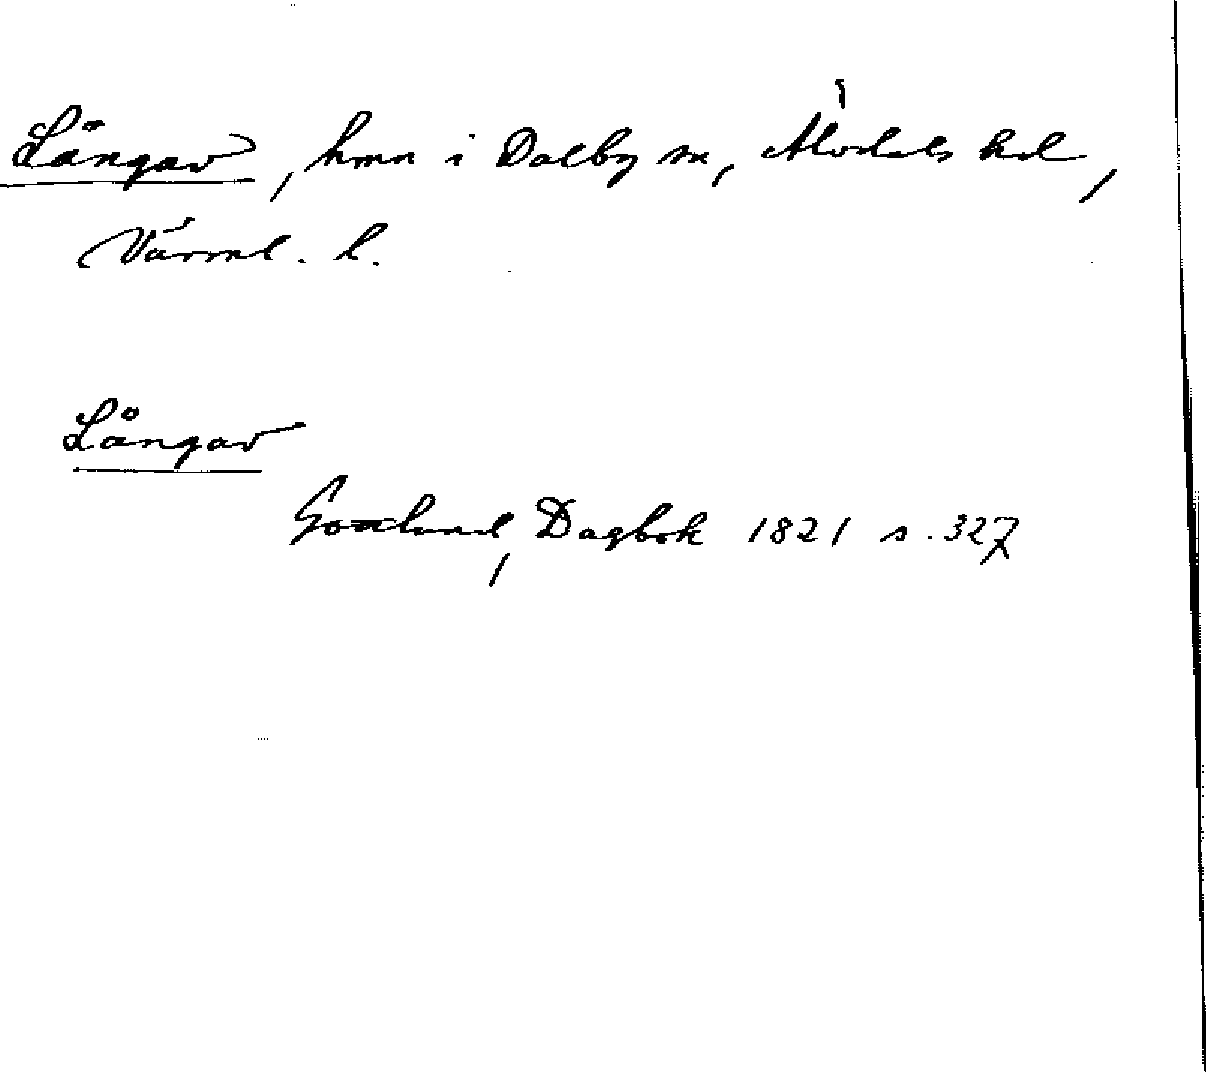 Långav, hmn i Dalby sn, Älvdals hd,
Värml. l.
Långav
Gottlund, Dagbok 1821 s. 327